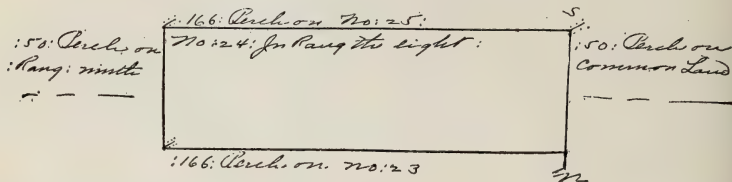 :166: Perch on No: 25: S
:50: Perch on
:Rang: ninth
No: 24: In Rang the eight:
:50: Perch on
Common Land
:166: Perch on No: 23
N